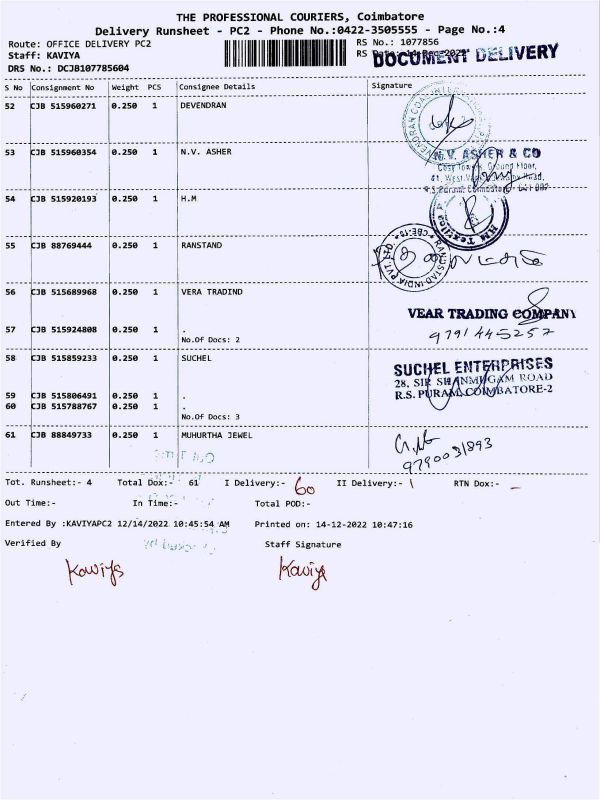 THE PROFESSIONAL COURIERS, Coimbatore
Delivery Runsheet - PC2 - Phone No.:0422-3505555 - Page No.:4
Route: OFFICE DELIVERY PC2
RS No.: 1077856
Staff: KAVIYA
RS Date: 14-Dec-2022
DOCUMENT DELIVERY
DRS No.: DCJB107785604
S No Consignment No Weight PCS Consignee Details Signature
52 CJB 515960271 0.250 1 DEVENDRAN
53 CJB 515960354 0.250 1 N.V. ASHER
N.V. ASHER & CO
Ground Floor,
54 CJB 515920193 0.250 1 H.M
HM Textiles
55 CJB 88769444 0.250 1 RANSTAND
RANDSTAD INDIA PVT. LTD. CBE-18
56 CJB 515689968 0.250 1 VERA TRADIND
VEAR TRADING COMPANY
57 CJB 515924808 0.250 1 .
No.Of Docs: 2
9791445257
58 CJB 515859233 0.250 1 SUCHEL
SUCHEL ENTERPRISES
28, SIR SHANMUGAM ROAD
R.S. PURAM, COIMBATORE-2
59 CJB 515806491 0.250 1 .
60 CJB 515788767 0.250 1 .
No.Of Docs: 3
61 CJB 88849733 0.250 1 MUHURTHA JEWEL
9790031893
Tot. Runsheet:- 4 Total Dox:- 61 I Delivery:- 60 II Delivery:- 1 RTN Dox:- -
Out Time:- In Time:- Total POD:-
Entered By :KAVIYAPC2 12/14/2022 10:45:54 AM Printed on: 14-12-2022 10:47:16
Verified By Staff Signature
Kaviya Kaviya